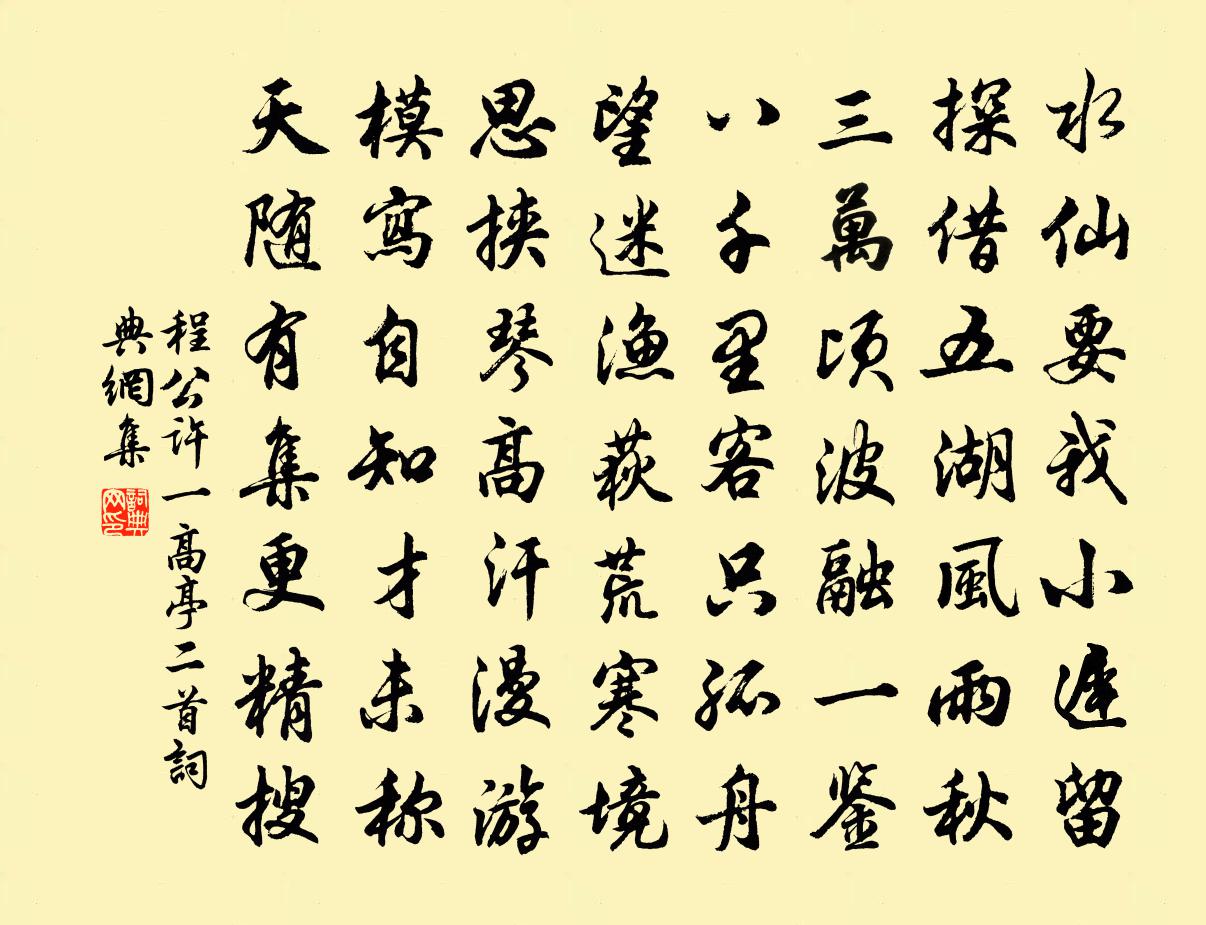 水仙要我小遲留
探借五湖風雨秋
三萬頃波融一鉴
八千里客只孤舟
望迷漁荻荒寒境
思挾琴高汗漫游
模寫自知才未称
天随有集更精搜
程公许一高亭二首詞
典網集
詞典网印